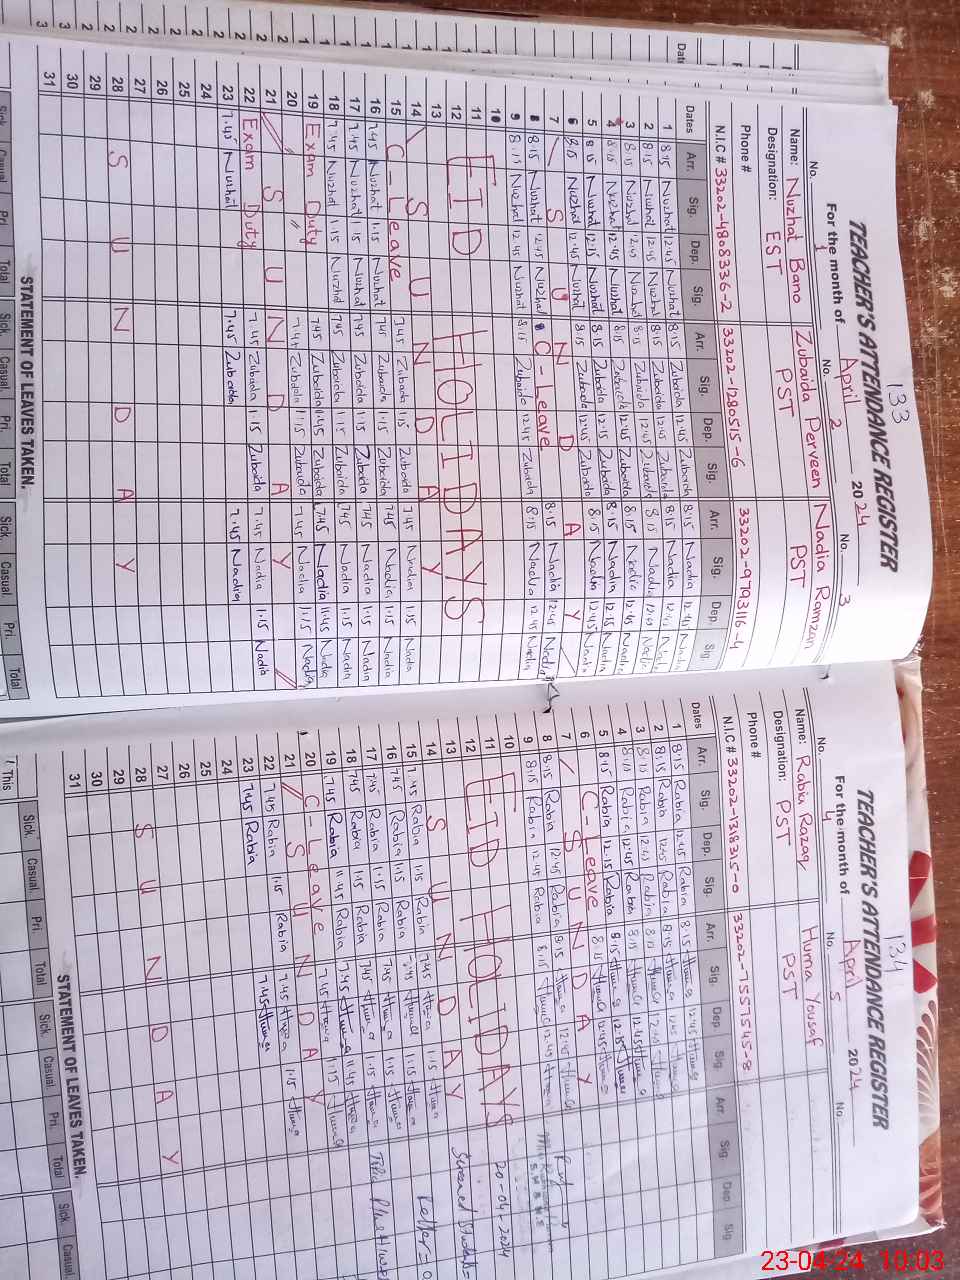 133
TEACHER'S ATTENDANCE REGISTER
For the month of April 2024
No. 1 No. 2 No. 3
Name: Nuzhat Bano Zubaida Perveen Nadia Ramzan
Designation: EST PST PST
Phone #
N.I.C # 33202-4808336-2 33202-1280515-6 33202-9793116-4
Dates Arr. Sig. Dep. Sig. Arr. Sig. Dep. Sig. Arr. Sig. Dep. Sig
1 8:15 Nuzhat 12:45 Nuzhat 8:15 Zubaida 12:45 Zubaida 8:15 Nadia 12:45 Nadia
2 8:15 Nuzhat 12:45 Nuzhat 8:15 Zubaida 12:45 Zubaida 8:15 Nadia 12:45 Nadia
3 8:15 Nuzhat 12:45 Nuzhat 8:15 Zubaida 12:45 Zubaida 8:15 Nadia 12:45 Nadia
4 8:15 Nuzhat 12:45 Nuzhat 8:15 Zubaida 12:45 Zubaida 8:15 Nadia 12:45 Nadia
5 8:15 Nuzhat 12:15 Nuzhat 8:15 Zubaida 12:15 Zubaida 8:15 Nadia 12:15 Nadia
6 8:15 Nuzhat 12:45 Nuzhat 8:15 Zubaida 12:45 Zubaida 8:15 Nadia 12:45 Nadia
7 S U N D A Y
8 8:15 Nuzhat 12:45 Nuzhat C-Leave 8:15 Nadia 12:45 Nadia
9 8:15 Nuzhat 12:45 Nuzhat 8:15 Zubaida 12:45 Zubaida 8:15 Nadia 12:45 Nadia
10
11
12 EID HOLIDAYS
13
14 S U N D A Y
15 C-Leave 7:45 Zubaida 1:15 Zubaida 7:45 Nadia 1:15 Nadia
16 7:45 Nuzhat 1:15 Nuzhat 7:45 Zubaida 1:15 Zubaida 7:45 Nadia 1:15 Nadia
17 7:45 Nuzhat 1:15 Nuzhat 7:45 Zubaida 1:15 Zubaida 7:45 Nadia 1:15 Nadia
18 7:45 Nuzhat 1:15 Nuzhat 7:45 Zubaida 1:15 Zubaida 7:45 Nadia 1:15 Nadia
19 Exam Duty 7:45 Zubaida 11:45 Zubaida 7:45 Nadia 11:45 Nadia
20 〃 〃 7:45 Zubaida 1:15 Zubaida 7:45 Nadia 1:15 Nadia
21 S U N D A Y
22 Exam Duty 7:45 Zubaida 1:15 Zubaida 7:45 Nadia 1:15 Nadia
23 7:45 Nuzhat 7:45 Zubaida 7:45 Nadia
24
25
26
27
28 S U N D A Y
29
30
31
STATEMENT OF LEAVES TAKEN.
Sick. Casual. Pri. Total Sick. Casual. Pri. Total Sick. Casual. Pri. Total
134
TEACHER'S ATTENDANCE REGISTER
For the month of April 2024
No. 4 No. 5 No.
Name: Rabia Razaq Huma Yousaf
Designation: PST PST
Phone #
N.I.C # 33202-1318315-0 33202-1557545-8
Dates Arr. Sig. Dep. Sig. Arr. Sig. Dep. Sig. Arr. Sig. Dep. Sig
1 8:15 Rabia 12:45 Rabia 8:15 Huma 12:45 Huma
2 8:15 Rabia 12:45 Rabia 8:15 Huma 12:45 Huma
3 8:15 Rabia 12:45 Rabia 8:15 Huma 12:45 Huma
4 8:15 Rabia 12:45 Rabia 8:15 Huma 12:45 Huma
5 8:15 Rabia 12:15 Rabia 8:15 Huma 12:15 Huma
6 C-Leave 8:15 Huma 12:45 Huma
7 S U N D A Y
8 8:15 Rabia 12:45 Rabia 8:15 Huma 12:45 Huma
9 8:15 Rabia 12:45 Rabia 8:15 Huma 12:45 Huma
10
11 EID HOLIDAYS 20-04-2024
12
13
14 S U N D A Y
15 7:45 Rabia 1:15 Rabia 7:45 Huma 1:15 Huma
16 7:45 Rabia 1:15 Rabia 7:45 Huma 1:15 Huma
17 7:45 Rabia 1:15 Rabia 7:45 Huma 1:15 Huma
18 7:45 Rabia 11:45 Rabia 7:45 Huma 11:45 Huma
19 7:45 Rabia 11:45 Rabia 7:45 Huma 1:15 Huma
20 C-Leave
21 S U N D A Y
22 7:45 Rabia 1:15 Rabia 7:45 Huma 1:15 Huma
23 7:45 Rabia 7:45 Huma
24
25
26
27
28 S U N D A Y
29
30
31
STATEMENT OF LEAVES TAKEN.
Sick. Casual. Pri. Total Sick. Casual. Pri. Total Sick. Casual.
This
23-04-24 10:03